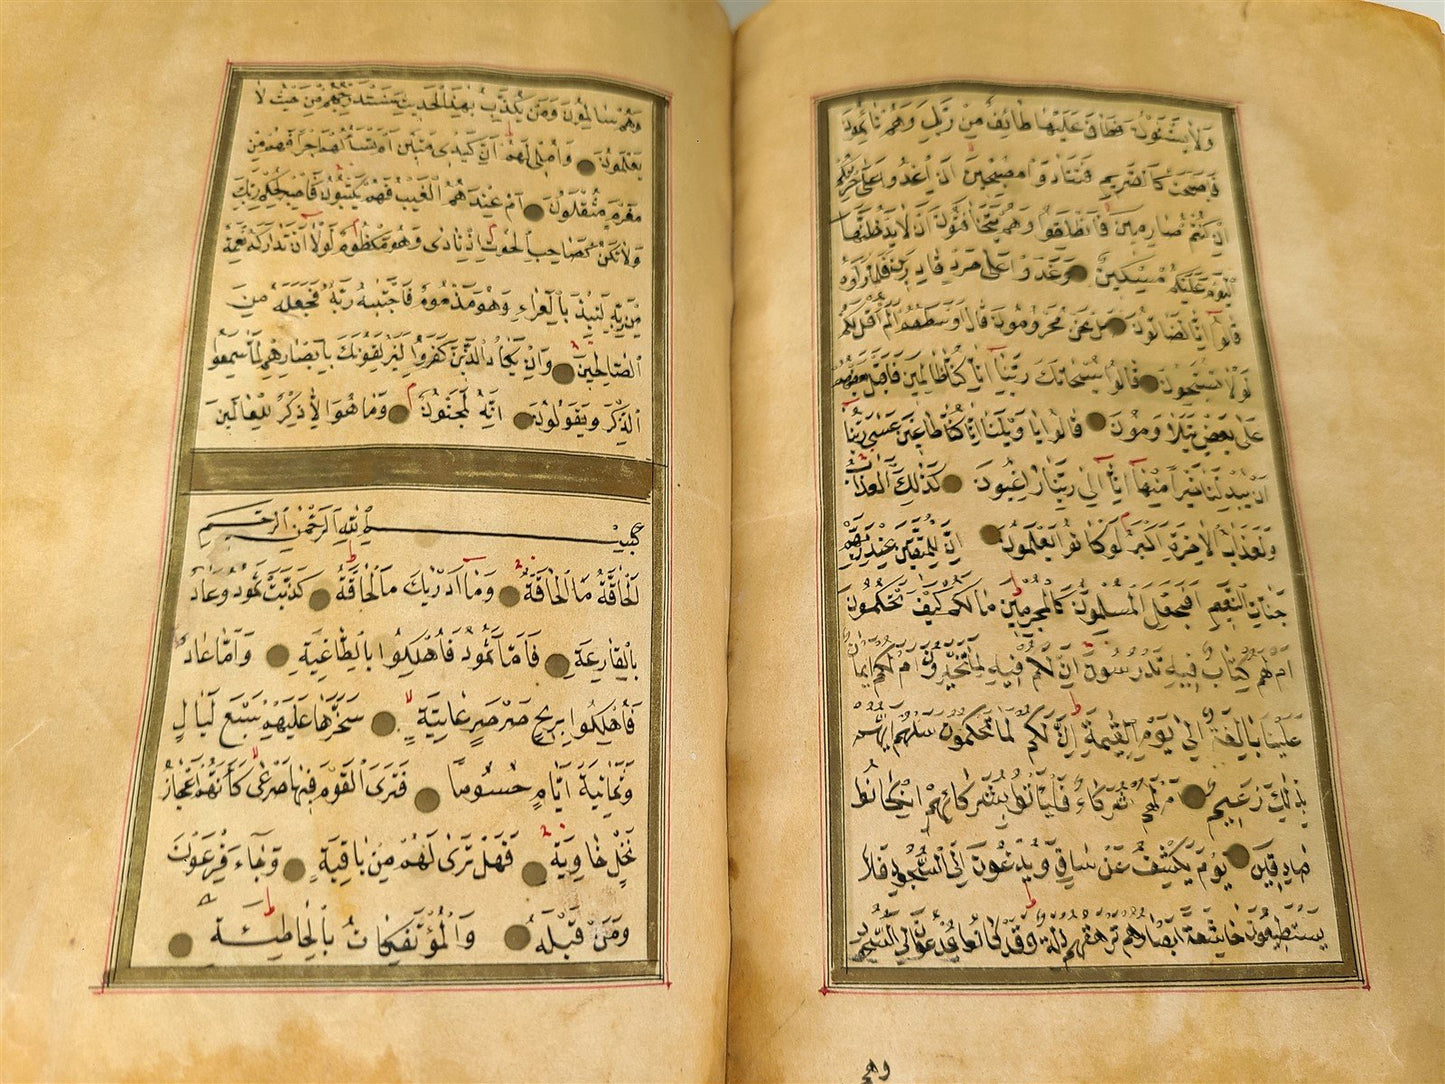 وَلَا يَسْتَثْنُونَ فَطَافَ عَلَيْهَا طَائِفٌ مِنْ رَبِّكَ وَهُمْ نَائِمُونَ
فَأَصْبَحَتْ كَالصَّرِيمِ فَتَنَادَوْا مُصْبِحِينَ اَنِ اغْدُوا عَلٰى حَرْثِكُمْ
اِنْ كُنْتُمْ صَارِمِينَ فَانْطَلَقُوا وَهُمْ يَتَخَافَتُونَ اَنْ لَا يَدْخُلَنَّهَا
الْيَوْمَ عَلَيْكُمْ مِسْكِينٌ وَغَدَوْا عَلٰى حَرْدٍ قَادِرِينَ فَلَمَّا رَاَوْهَا
قَالُوا اِنَّا لَضَالُّونَ بَلْ نَحْنُ مَحْرُومُونَ قَالَ اَوْسَطُهُمْ اَلَمْ اَقُلْ لَكُمْ
لَوْلَا تُسَبِّحُونَ قَالُوا سُبْحَانَكَ رَبَّنَا اِنَّا كُنَّا ظَالِمِينَ فَاَقْبَلَ بَعْضُهُمْ
عَلٰى بَعْضٍ يَتَلَاوَمُونَ قَالُوا يَا وَيْلَنَا اِنَّا كُنَّا طَاغِينَ عَسٰى رَبُّنَا
اَنْ يُبْدِلَنَا خَيْرًا مِنْهَا اِنَّا اِلٰى رَبِّنَا رَاغِبُونَ كَذٰلِكَ الْعَذَابُ
وَلَعَذَابُ الْاٰخِرَةِ اَكْبَرُ لَوْ كَانُوا يَعْلَمُونَ اِنَّ لِلْمُتَّقِينَ عِنْدَ رَبِّهِمْ
جَنَّاتِ النَّعِيمِ اَفَنَجْعَلُ الْمُسْلِمِينَ كَالْمُجْرِمِينَ مَا لَكُمْ كَيْفَ تَحْكُمُونَ
اَمْ لَكُمْ كِتَابٌ فِيهِ تَدْرُسُونَ اِنَّ لَكُمْ فِيهِ لَمَا تَخَيَّرُونَ اَمْ لَكُمْ اَيْمَانٌ
عَلَيْنَا بَالِغَةٌ اِلٰى يَوْمِ الْقِيٰمَةِ اِنَّ لَكُمْ لَمَا تَحْكُمُونَ سَلْهُمْ اَيُّهُمْ
بِذٰلِكَ زَعِيمٌ اَمْ لَهُمْ شُرَكَاءُ فَلْيَأْتُوا بِشُرَكَائِهِمْ اِنْ كَانُوا
صَادِقِينَ يَوْمَ يُكْشَفُ عَنْ سَاقٍ وَيُدْعَوْنَ اِلَى السُّجُودِ فَلَا
يَسْتَطِيعُونَ خَاشِعَةً اَبْصَارُهُمْ تَرْهَقُهُمْ ذِلَّةٌ وَقَدْ كَانُوا يُدْعَوْنَ اِلَى السُّجُودِ
وهم
وَهُمْ سَالِمُونَ وَمَنْ يُكَذِّبُ بِهٰذَا الْحَدِيثِ سَنَسْتَدْرِجُهُمْ مِنْ حَيْثُ لَا
يَعْلَمُونَ وَاُمْلِي لَهُمْ اِنَّ كَيْدِي مَتِينٌ اَمْ تَسْاَلُهُمْ اَجْرًا فَهُمْ مِنْ
مَغْرَمٍ مُثْقَلُونَ اَمْ عِنْدَهُمُ الْغَيْبُ فَهُمْ يَكْتُبُونَ فَاصْبِرْ لِحُكْمِ رَبِّكَ
وَلَا تَكُنْ كَصَاحِبِ الْحُوتِ اِذْ نَادٰى وَهُوَ مَكْظُومٌ لَوْلَا اَنْ تَدَارَكَهُ نِعْمَةٌ
مِنْ رَبِّهِ لَنُبِذَ بِالْعَرَاءِ وَهُوَ مَذْمُومٌ فَاجْتَبٰيهُ رَبُّهُ فَجَعَلَهُ مِنَ
الصَّالِحِينَ وَاِنْ يَكَادُ الَّذِينَ كَفَرُوا لَيُزْلِقُونَكَ بِاَبْصَارِهِمْ لَمَّا سَمِعُوا
الذِّكْرَ وَيَقُولُونَ اِنَّهُ لَمَجْنُونٌ وَمَا هُوَ اِلَّا ذِكْرٌ لِلْعَالَمِينَ
بِسْمِ اللّٰهِ الرَّحْمٰنِ الرَّحِيمِ
اَلْحَاقَّةُ مَا الْحَاقَّةُ وَمَا اَدْرٰيكَ مَا الْحَاقَّةُ كَذَّبَتْ ثَمُودُ وَعَادٌ
بِالْقَارِعَةِ فَاَمَّا ثَمُودُ فَاُهْلِكُوا بِالطَّاغِيَةِ وَاَمَّا عَادٌ
فَاُهْلِكُوا بِرِيحٍ صَرْصَرٍ عَاتِيَةٍ سَخَّرَهَا عَلَيْهِمْ سَبْعَ لَيَالٍ
وَثَمَانِيَةَ اَيَّامٍ حُسُومًا فَتَرَى الْقَوْمَ فِيهَا صَرْعٰى كَاَنَّهُمْ اَعْجَازُ
نَخْلٍ خَاوِيَةٍ فَهَلْ تَرٰى لَهُمْ مِنْ بَاقِيَةٍ وَجَاءَ فِرْعَوْنُ
وَمَنْ قَبْلَهُ وَالْمُؤْتَفِكَاتُ بِالْخَاطِئَةِ